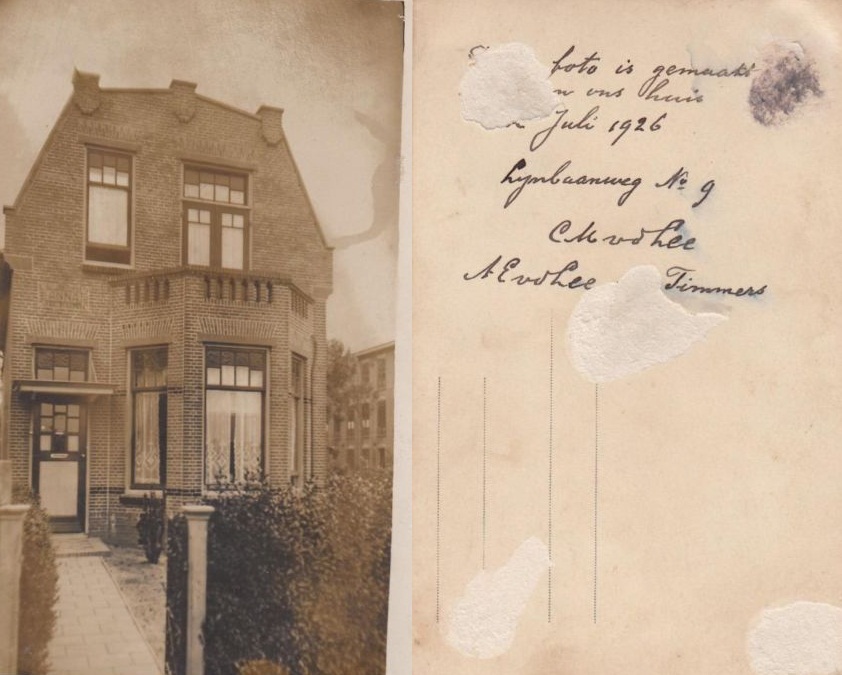 foto is gemaakt
ons huis
Juli 1926
Lynbaanweg No 9
CMvdLee
AEvdLee Timmers